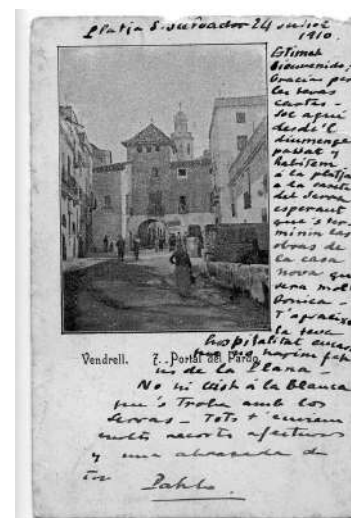 Platja S. Salvador 24 juliol
1910.
Estimat
Bienvenido;
Gracias per
las tevas
cartas -
Soc aquí
desde'l
diumenge
passat y
habitem
á la platja
a la caseta
del Serra
esperant
que's ter
minin las
obras de
la casa
nova que
sera molt
bonica -
T'apraeixo
la teva
hospitalitat
us de la Plana -
No hi vist á la Blanca
que's troba amb los
Serras - Tots t'enviem
molts recorts afectuosos
y una abrasada de
ton Pablo
Vendrell. 7. - Portal del Pardo